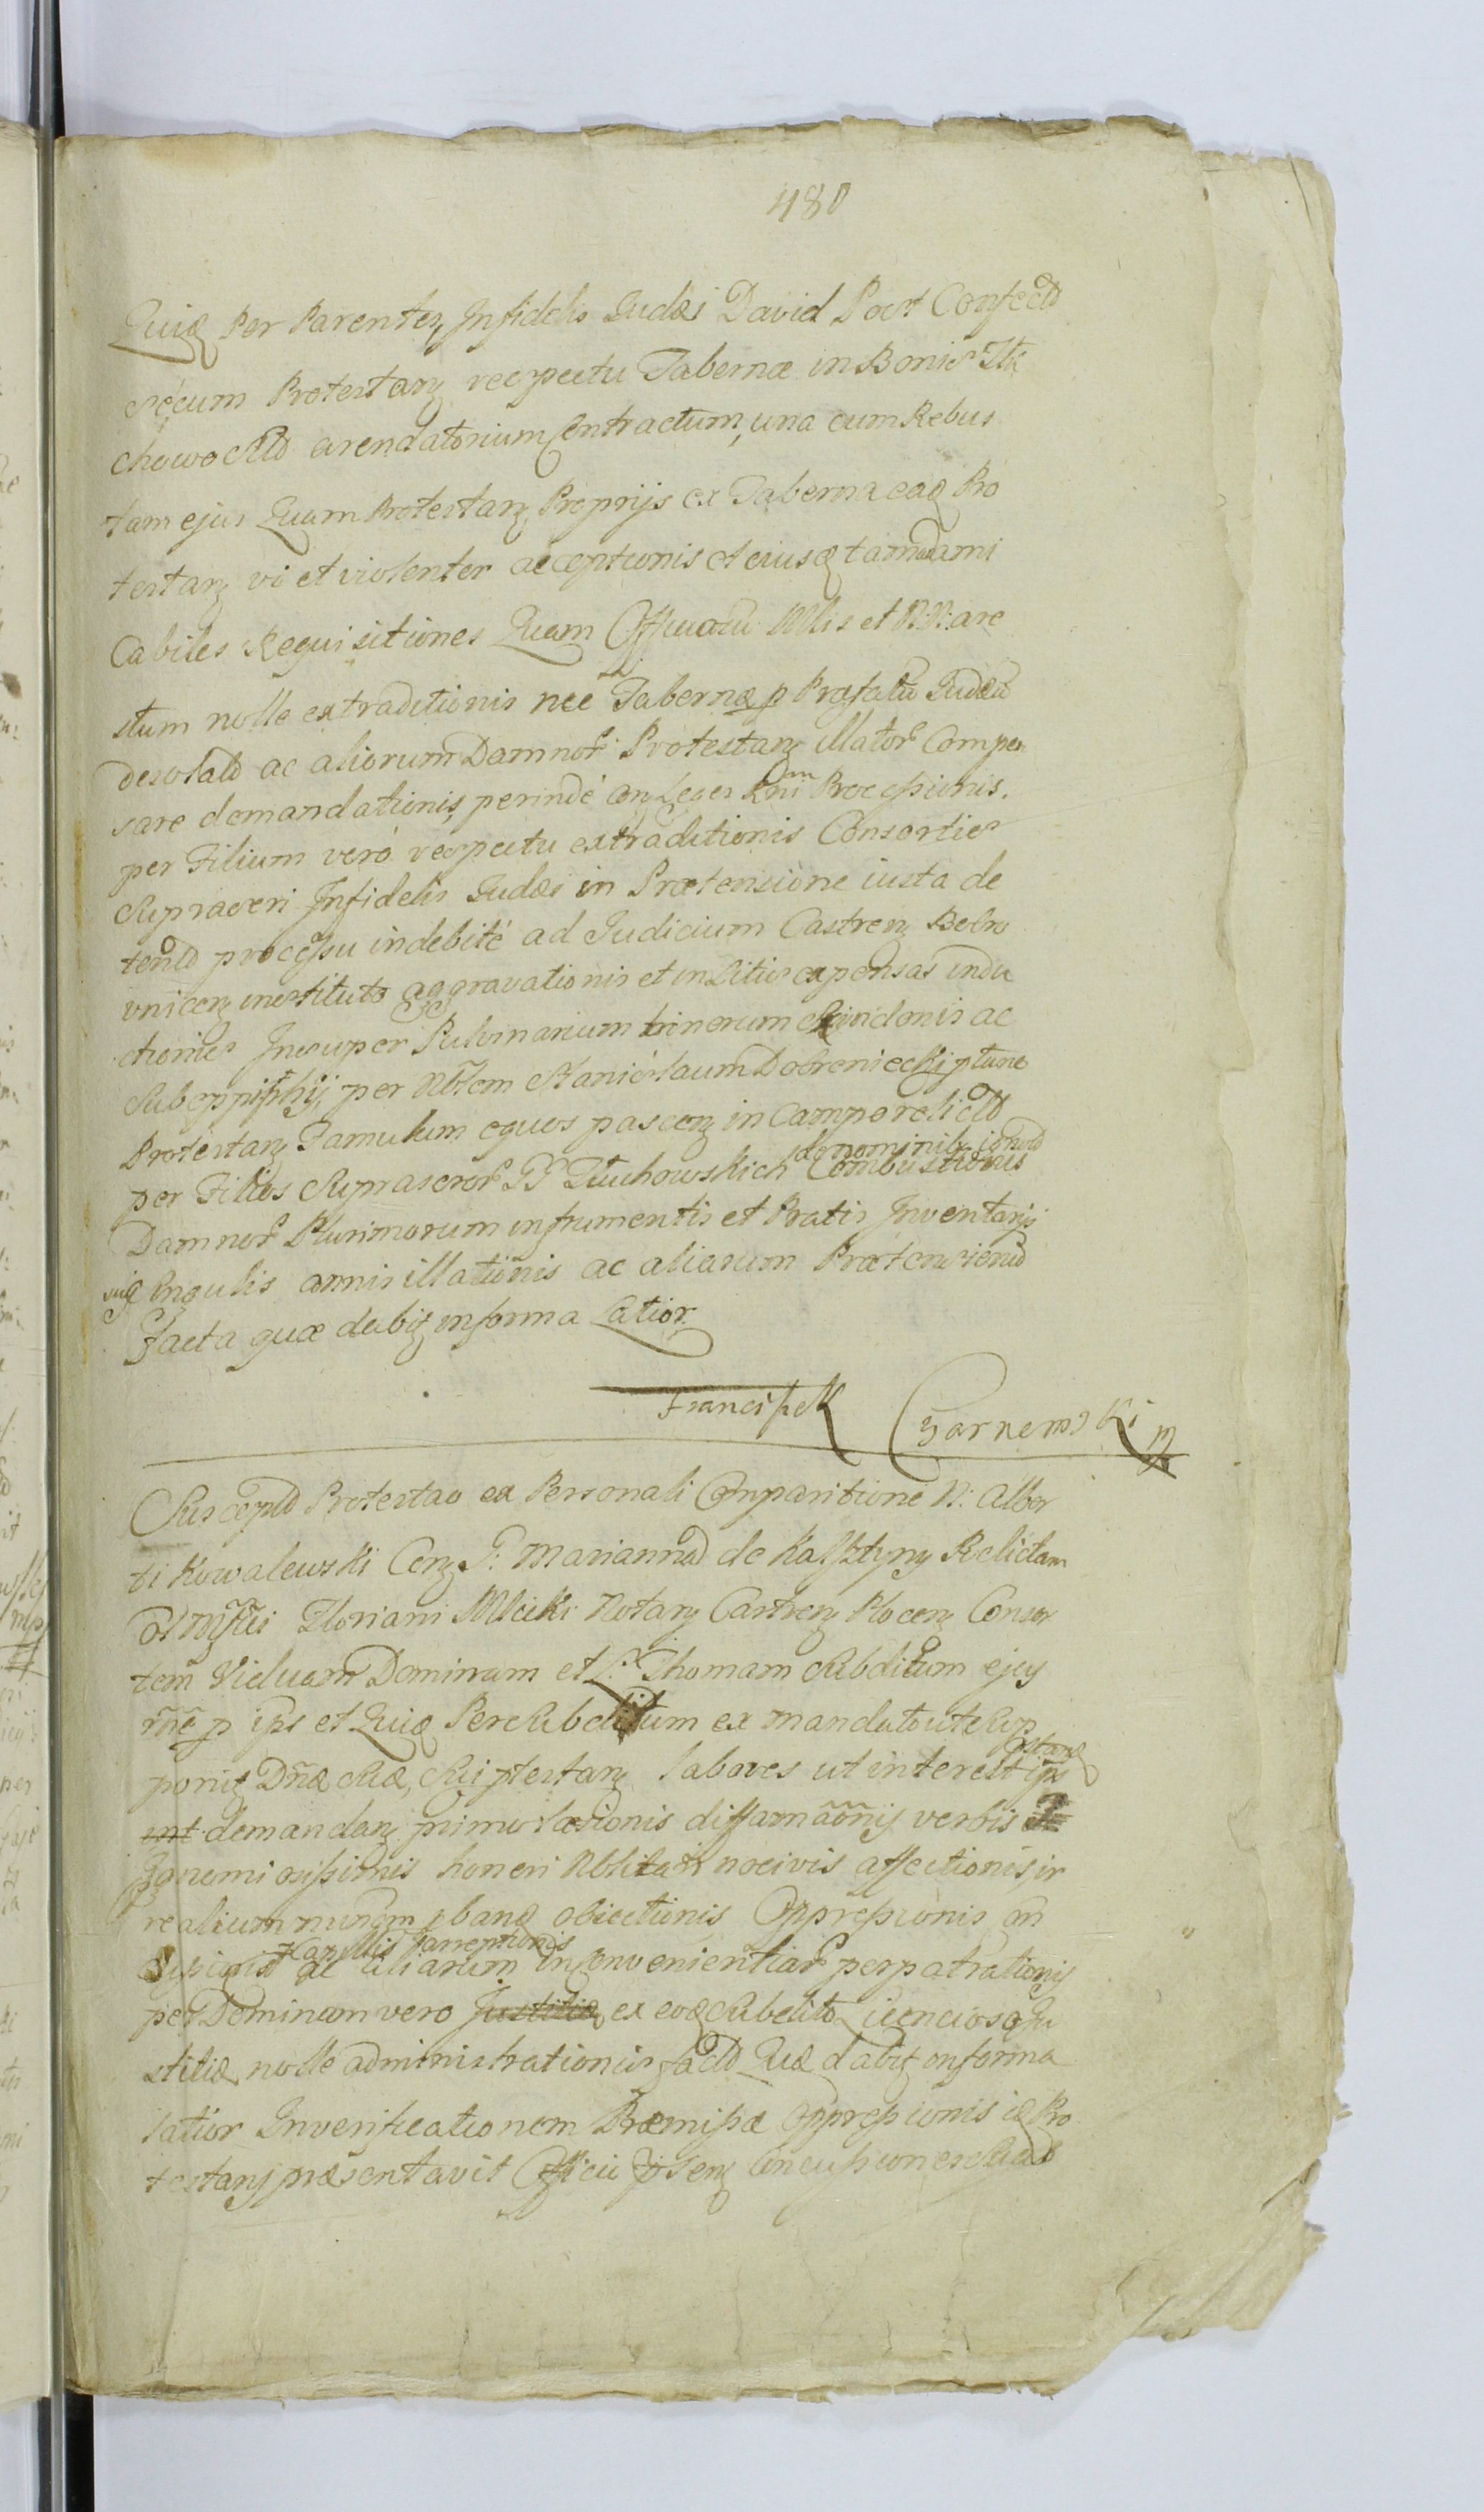 480
Quiq per Parentes, Infidelis Judæi David Post Confecto
secum Protestanz respectu Tabernæ in Bonis Tlu
chowo Sto arendatorium Contractum, una cum Rebus
tam ejus Quam Protestanz Proprijs ex Taberna eaq Pro
testanz vi et violenter acceptionis et eiusq tam ami
cabiles Requisitiones Quam Offu Mlis et are
stum nolle extraditionis nec Tabernæ p Præfatū Judæū
desolato ac aliorum Damnor. Protestanz illator. Compen
sare demandationis, perindé Leges Rni Processionis.
per Filium veró respectu extraditionis Consortis
Supraveri Infidelis Judæi in Prætensione iusta de
tento processu indebité ad Judicium Castrenz Bobro
vnicenz instituto aggravationis et in Litis expensas indu
ctionis Insuper Pulvinarium trinorum Sindonis ac
Sub per Nblem Stanislaum Dobreniecki ptunc
Protestanz Famulum equos pascenz in Campo relicto
do nominib
per Filios Suprascror. Tłuchowskich Combustionis
Damnor. Plurimorum in frumentis et Pratis Inventarij
suiq singulis annis illationis ac aliarum Prætensionu
Facta quæ dabiz in forma Latior.
Franciszek Czarnomski mp
Suscepto Protestao ex Personali Comparitione N: Alber
ti Kowalewski Conz G: Mariannā de Kassztyny Relictam
ol Floriani Mlicki Notary Castrenz Plocenz Consor
tem Viduam Dominam et Thomam Subditum ejus
rōne p ips et Quiq Per Subditum ex mandato ut Sup
ponitz Dnæ Suæ, Sui ptestanz labores ut interest ips
int demandanz primo læsionis diffamāonis verbis
honori Nblitari nocivis affectionis, ir
realium obiectionis Oppressionis
Capillis Jarreptionis
ac aliarum Inconvenientiar. perpatrationis
per Dominam vero Justitiæ ex eoq Subdito Ju
stitiæ nolle administrationis facto Quæ dabiz in forma
latior In verificationem Præmissæ Oppressionis iq Pro
testanz præsentavit Officio psenz Concussiones